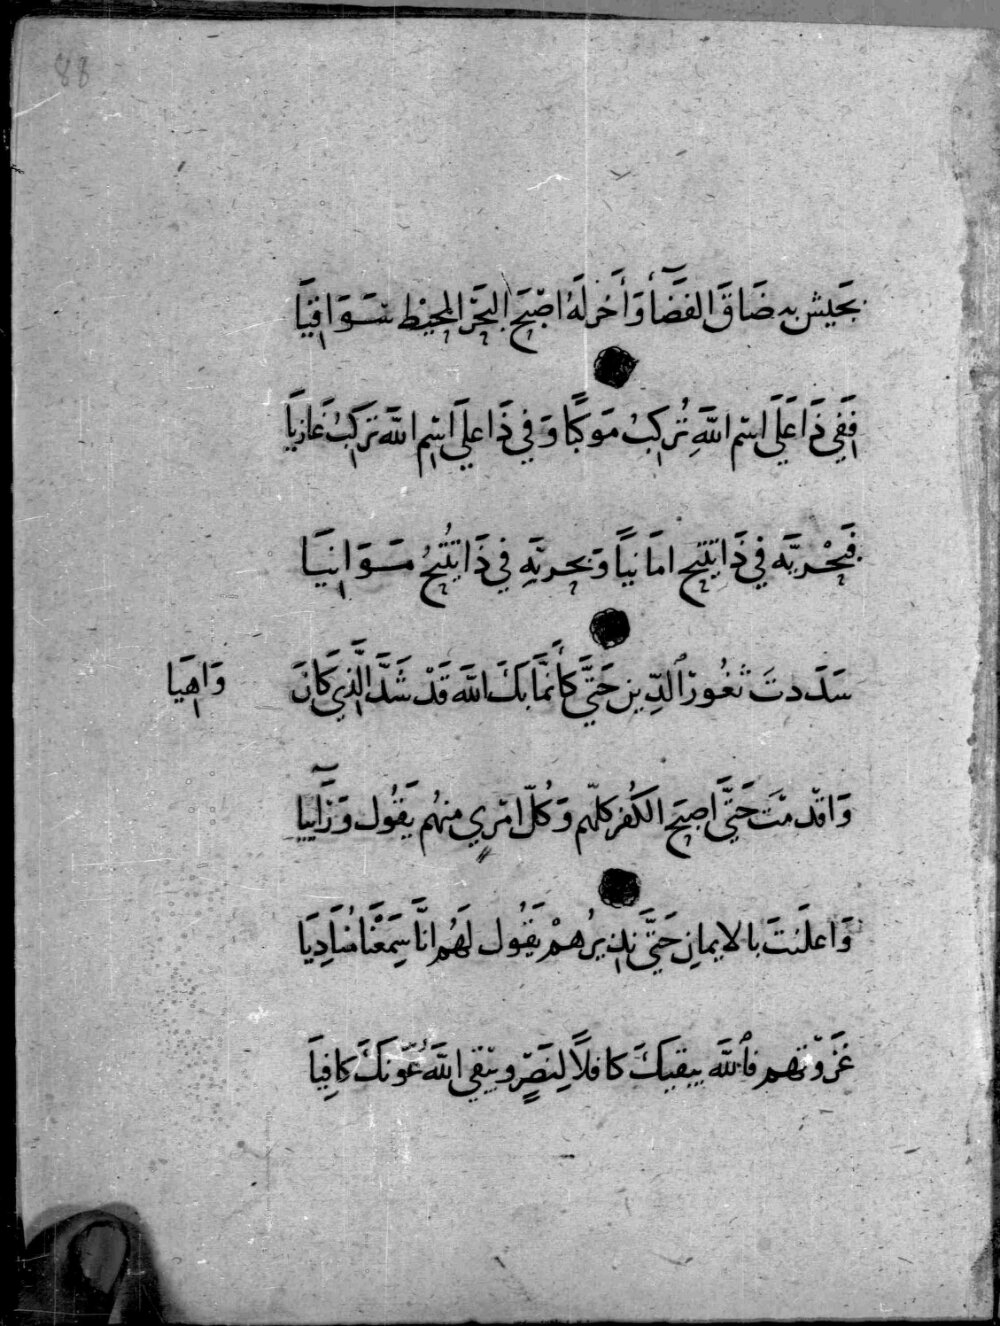 88
بِجَيش به ضَاقَ الفَضَأ وَأخرلَهُ اصْبَحَ البَحَرْ المحِيْط سَوَاقِيَا
فَفِي ذَا عَلَى اسْم اللَّهِ تُركبُ مَوكبًا وَفي ذَا على اسْم اللَّه تركَبُ غَازيَا
فبحْريَّه في ذَا تنتج امَانيًا وَبحريَّهِ في ذَا تنُتجُ مَسوَانيَا
سَدَدتَ ثغُورَ ٱلدِّين حَتَّي كأنمَّا بكَ اللَّه قَدْ شَدَّ الَّذِي كَانَ وَاهيَا
وَاقدْمتَ حَتَّي اصبَح الكُفر كلّهم وَكُلّ امْرىٍ منهُم يَقُول وَرَآييا
وَاعلَنتَ بالايمانِ حَتَّي نذيرُهمْ يَقُول لَهُم انَّا سِمَعْنَا مُنَادِيَا
غَزَوْتهم فٱللَّه يبقيكَ كافلاً لِنَصْرٍ ويبْقي اللَّهُ عَوْنكَ كافِيَا